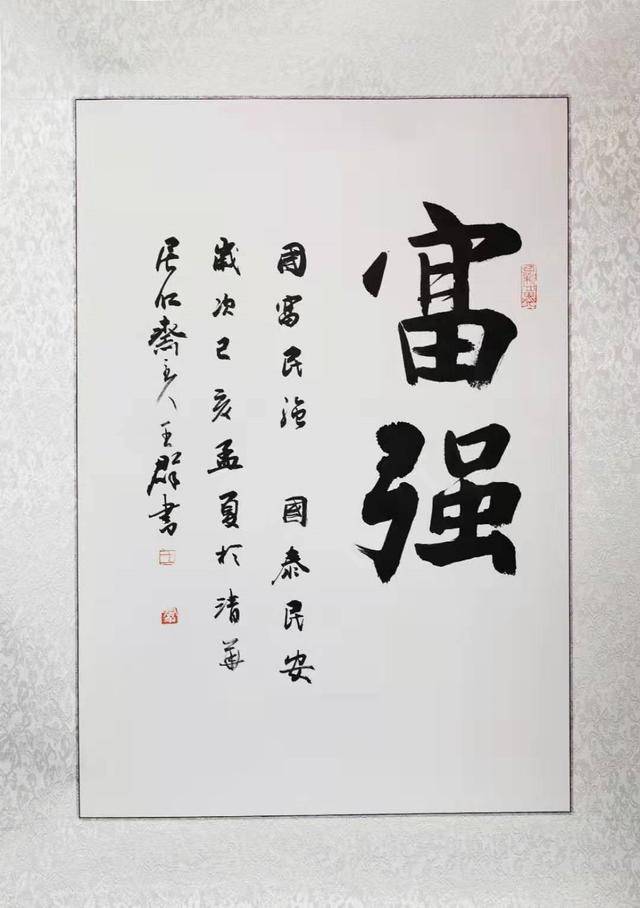 富强
國富民強 國泰民安
歲次己亥孟夏於清華
居仁齋主人王群書